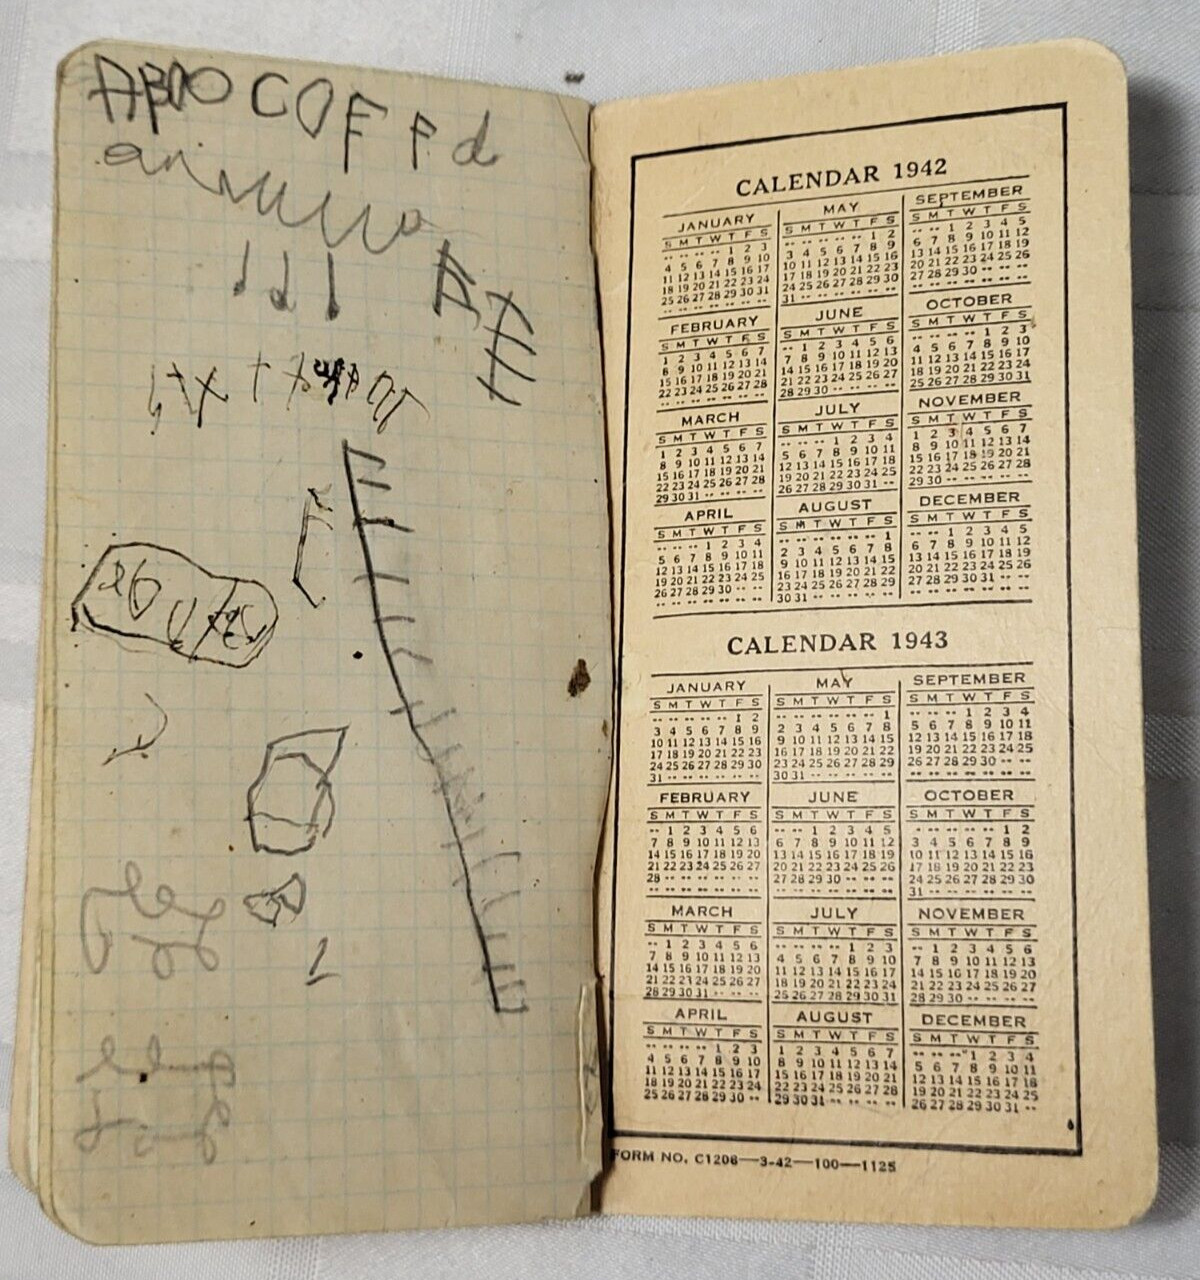 C O F F d
CALENDAR 1942
JANUARY
S M T W T F S
·· ·· ·· ·· 1 2 3
4 5 6 7 8 9 10
11 12 13 14 15 16 17
18 19 20 21 22 23 24
25 26 27 28 29 30 31
·· ·· ·· ·· ·· ·· ··
FEBRUARY
S M T W T F S
1 2 3 4 5 6 7
8 9 10 11 12 13 14
15 16 17 18 19 20 21
22 23 24 25 26 27 28
·· ·· ·· ·· ·· ·· ··
MARCH
S M T W T F S
1 2 3 4 5 6 7
8 9 10 11 12 13 14
15 16 17 18 19 20 21
22 23 24 25 26 27 28
29 30 31 ·· ·· ·· ··
APRIL
S M T W T F S
·· ·· ·· 1 2 3 4
5 6 7 8 9 10 11
12 13 14 15 16 17 18
19 20 21 22 23 24 25
26 27 28 29 30 ·· ··
·· ·· ·· ·· ·· ·· ··
MAY
S M T W T F S
·· ·· ·· ·· ·· 1 2
3 4 5 6 7 8 9
10 11 12 13 14 15 16
17 18 19 20 21 22 23
24 25 26 27 28 29 30
31 ·· ·· ·· ·· ·· ··
JUNE
S M T W T F S
·· 1 2 3 4 5 6
7 8 9 10 11 12 13
14 15 16 17 18 19 20
21 22 23 24 25 26 27
28 29 30 ·· ·· ·· ··
JULY
S M T W T F S
·· ·· ·· 1 2 3 4
5 6 7 8 9 10 11
12 13 14 15 16 17 18
19 20 21 22 23 24 25
26 27 28 29 30 31 ··
AUGUST
S M T W T F S
·· ·· ·· ·· ·· ·· 1
2 3 4 5 6 7 8
9 10 11 12 13 14 15
16 17 18 19 20 21 22
23 24 25 26 27 28 29
30 31 ·· ·· ·· ·· ··
SEPTEMBER
S M T W T F S
·· ·· 1 2 3 4 5
6 7 8 9 10 11 12
13 14 15 16 17 18 19
20 21 22 23 24 25 26
27 28 29 30 ·· ·· ··
OCTOBER
S M T W T F S
·· ·· ·· ·· 1 2 3
4 5 6 7 8 9 10
11 12 13 14 15 16 17
18 19 20 21 22 23 24
25 26 27 28 29 30 31
NOVEMBER
S M T W T F S
1 2 3 4 5 6 7
8 9 10 11 12 13 14
15 16 17 18 19 20 21
22 23 24 25 26 27 28
29 30 ·· ·· ·· ·· ··
DECEMBER
S M T W T F S
·· ·· 1 2 3 4 5
6 7 8 9 10 11 12
13 14 15 16 17 18 19
20 21 22 23 24 25 26
27 28 29 30 31 ·· ··
·· ·· ·· ·· ·· ·· ··
CALENDAR 1943
JANUARY
S M T W T F S
·· ·· ·· ·· ·· 1 2
3 4 5 6 7 8 9
10 11 12 13 14 15 16
17 18 19 20 21 22 23
24 25 26 27 28 29 30
31 ·· ·· ·· ·· ·· ··
FEBRUARY
S M T W T F S
·· 1 2 3 4 5 6
7 8 9 10 11 12 13
14 15 16 17 18 19 20
21 22 23 24 25 26 27
28 ·· ·· ·· ·· ·· ··
·· ·· ·· ·· ·· ·· ··
MARCH
S M T W T F S
·· 1 2 3 4 5 6
7 8 9 10 11 12 13
14 15 16 17 18 19 20
21 22 23 24 25 26 27
28 29 30 31 ·· ·· ··
APRIL
S M T W T F S
·· ·· ·· ·· 1 2 3
4 5 6 7 8 9 10
11 12 13 14 15 16 17
18 19 20 21 22 23 24
25 26 27 28 29 30 ··
MAY
S M T W T F S
·· ·· ·· ·· ·· ·· 1
2 3 4 5 6 7 8
9 10 11 12 13 14 15
16 17 18 19 20 21 22
23 24 25 26 27 28 29
30 31 ·· ·· ·· ·· ··
JUNE
S M T W T F S
·· ·· 1 2 3 4 5
6 7 8 9 10 11 12
13 14 15 16 17 18 19
20 21 22 23 24 25 26
27 28 29 30 ·· ·· ··
·· ·· ·· ·· ·· ·· ··
JULY
S M T W T F S
·· ·· ·· ·· 1 2 3
4 5 6 7 8 9 10
11 12 13 14 15 16 17
18 19 20 21 22 23 24
25 26 27 28 29 30 31
AUGUST
S M T W T F S
1 2 3 4 5 6 7
8 9 10 11 12 13 14
15 16 17 18 19 20 21
22 23 24 25 26 27 28
29 30 31 ·· ·· ·· ··
SEPTEMBER
S M T W T F S
·· ·· ·· 1 2 3 4
5 6 7 8 9 10 11
12 13 14 15 16 17 18
19 20 21 22 23 24 25
26 27 28 29 30 ·· ··
·· ·· ·· ·· ·· ·· ··
OCTOBER
S M T W T F S
·· ·· ·· ·· ·· 1 2
3 4 5 6 7 8 9
10 11 12 13 14 15 16
17 18 19 20 21 22 23
24 25 26 27 28 29 30
31 ·· ·· ·· ·· ·· ··
NOVEMBER
S M T W T F S
·· 1 2 3 4 5 6
7 8 9 10 11 12 13
14 15 16 17 18 19 20
21 22 23 24 25 26 27
28 29 30 ·· ·· ·· ··
DECEMBER
S M T W T F S
·· ·· ·· 1 2 3 4
5 6 7 8 9 10 11
12 13 14 15 16 17 18
19 20 21 22 23 24 25
26 27 28 29 30 31 ··
FORM NO. C1206—3-42—100—1125